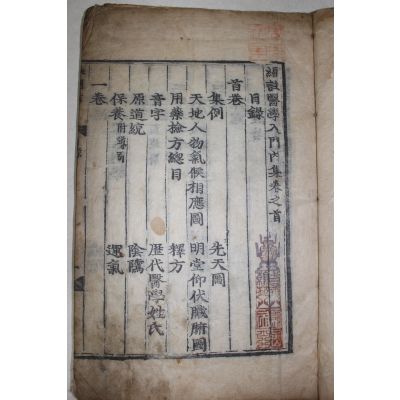 編註醫學入門內集卷之首
目錄
首卷
集例 先天圖
天地人物氣候相應圖 明堂仰伏臟腑圖
用藥檢方總目 釋方
音字 歷代醫學姓氏
原道統 陰隲
保養
一卷 運氣